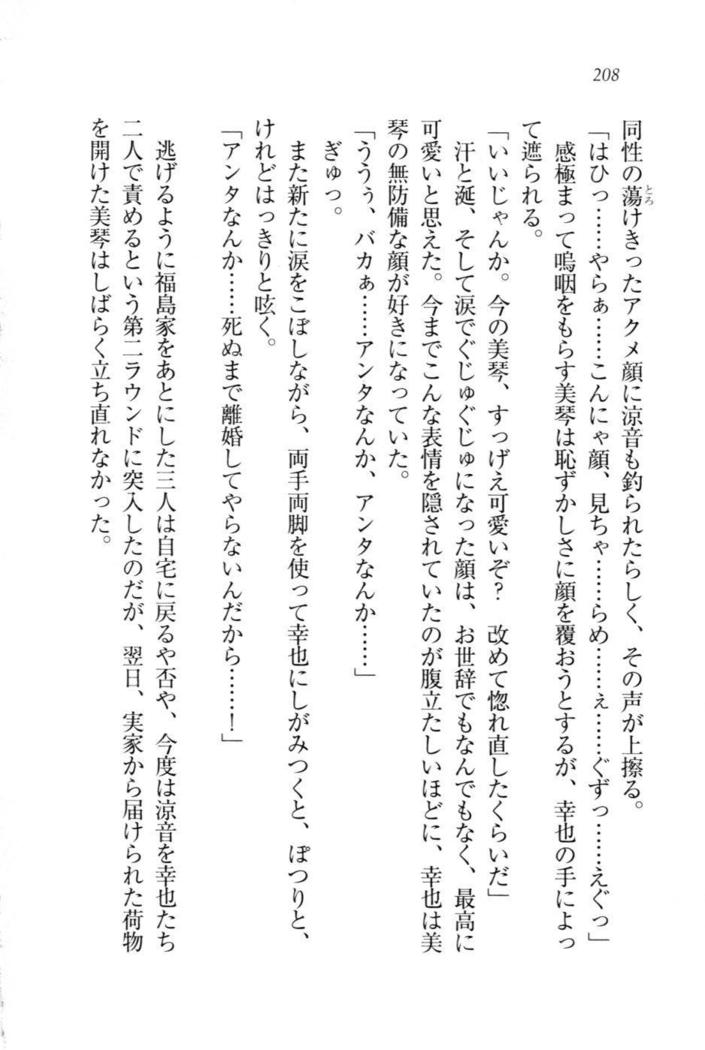 208
同性の蕩けきったアクメ顔に涼音も釣られたらしく、その声が上擦る。
とろ
「はひっ……やらぁ……こんにゃ顔、見ちゃ……らめ……ぇ……ぐずっ……えぐっ」
感極まって嗚咽をもらす美琴は恥ずかしさに顔を覆おうとするが、幸也の手によっ
て遮られる。
「いいじゃんか。今の美琴、すっげえ可愛いぞ？　改めて惚れ直したくらいだ」
汗と涎、そして涙でぐじゅぐじゅになった顔は、お世辞でもなんでもなく、最高に
可愛いと思えた。今までこんな表情を隠されていたのが腹立たしいほどに、幸也は美
琴の無防備な顔が好きになっていた。
「ううぅ、バカぁ……アンタなんか、アンタなんか……」
ぎゅっ。
また新たに涙をこぼしながら、両手両脚を使って幸也にしがみつくと、ぽつりと、
けれどはっきりと呟く。
「アンタなんか……死ぬまで離婚してやらないんだから……！」
逃げるように福島家をあとにした三人は自宅に戻るや否や、今度は涼音を幸也たち
二人で責めるという第二ラウンドに突入したのだが、翌日、実家から届けられた荷物
を開けた美琴はしばらく立ち直れなかった。